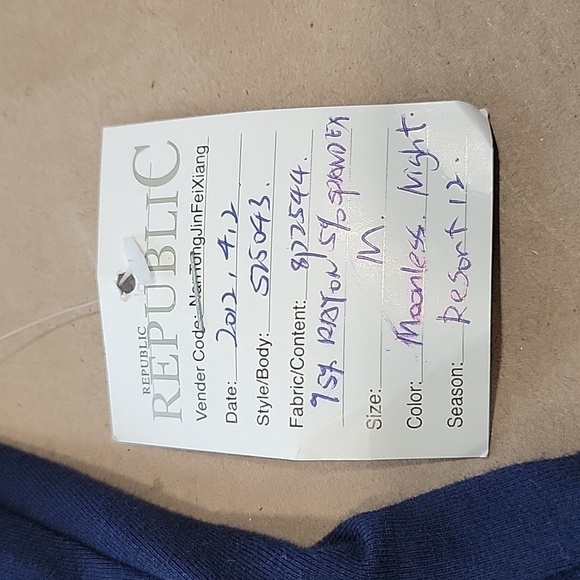 REPUBLIC
REPUBLIC
Vender Code: NanTongJinFeiXiang
Date: 2012.4.12
Style/Body: S25043.
Fabric/Content: 8J22544.
95% RAYON 5% SPANDEX
Size: M.
Color: Moonless Night.
Season: Resort 12.